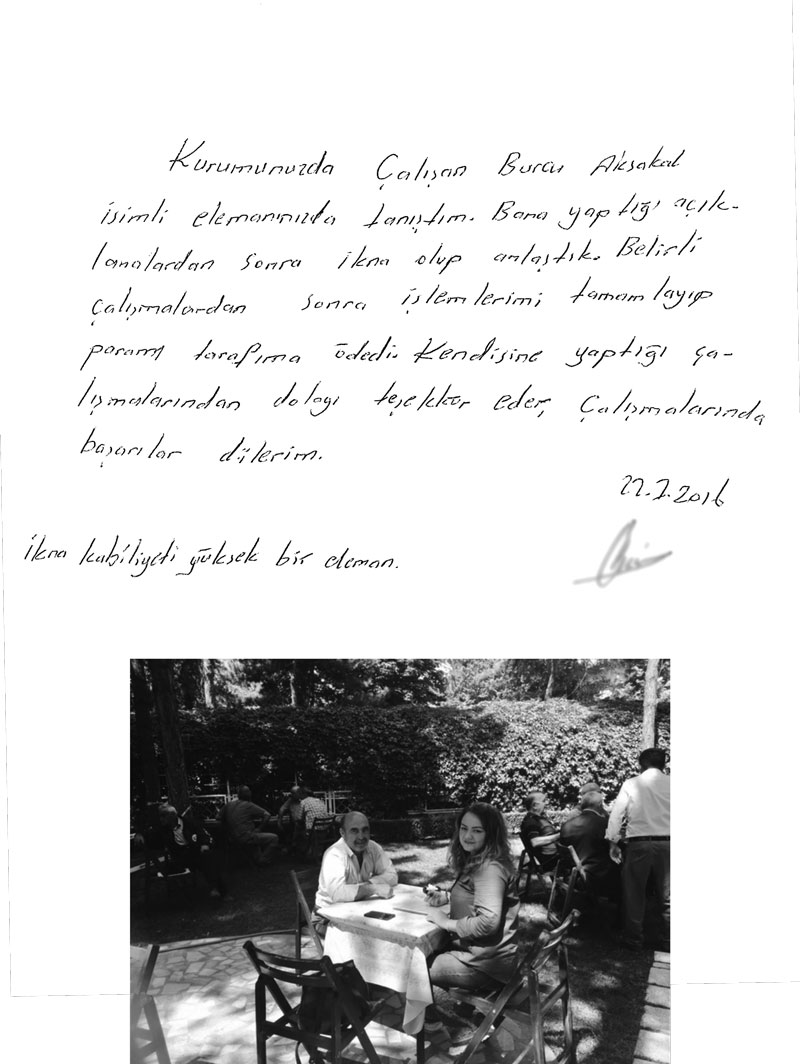 Kurumunuzda Çalışan Burcu Aksakal
isimli elemanınızda tanıştım. Bana yaptığı açık-
lamalardan sonra ikna olup anlaştık. Belirli
çalışmalardan sonra işlemlerimi tamamlayıp
paramı tarafıma ödedi. Kendisine yaptığı ça-
lışmalarından dolayı teşekkür eder, Çalışmalarında
başarılar dilerim.
22.7.2016
ikna kabiliyeti yüksek bir eleman.